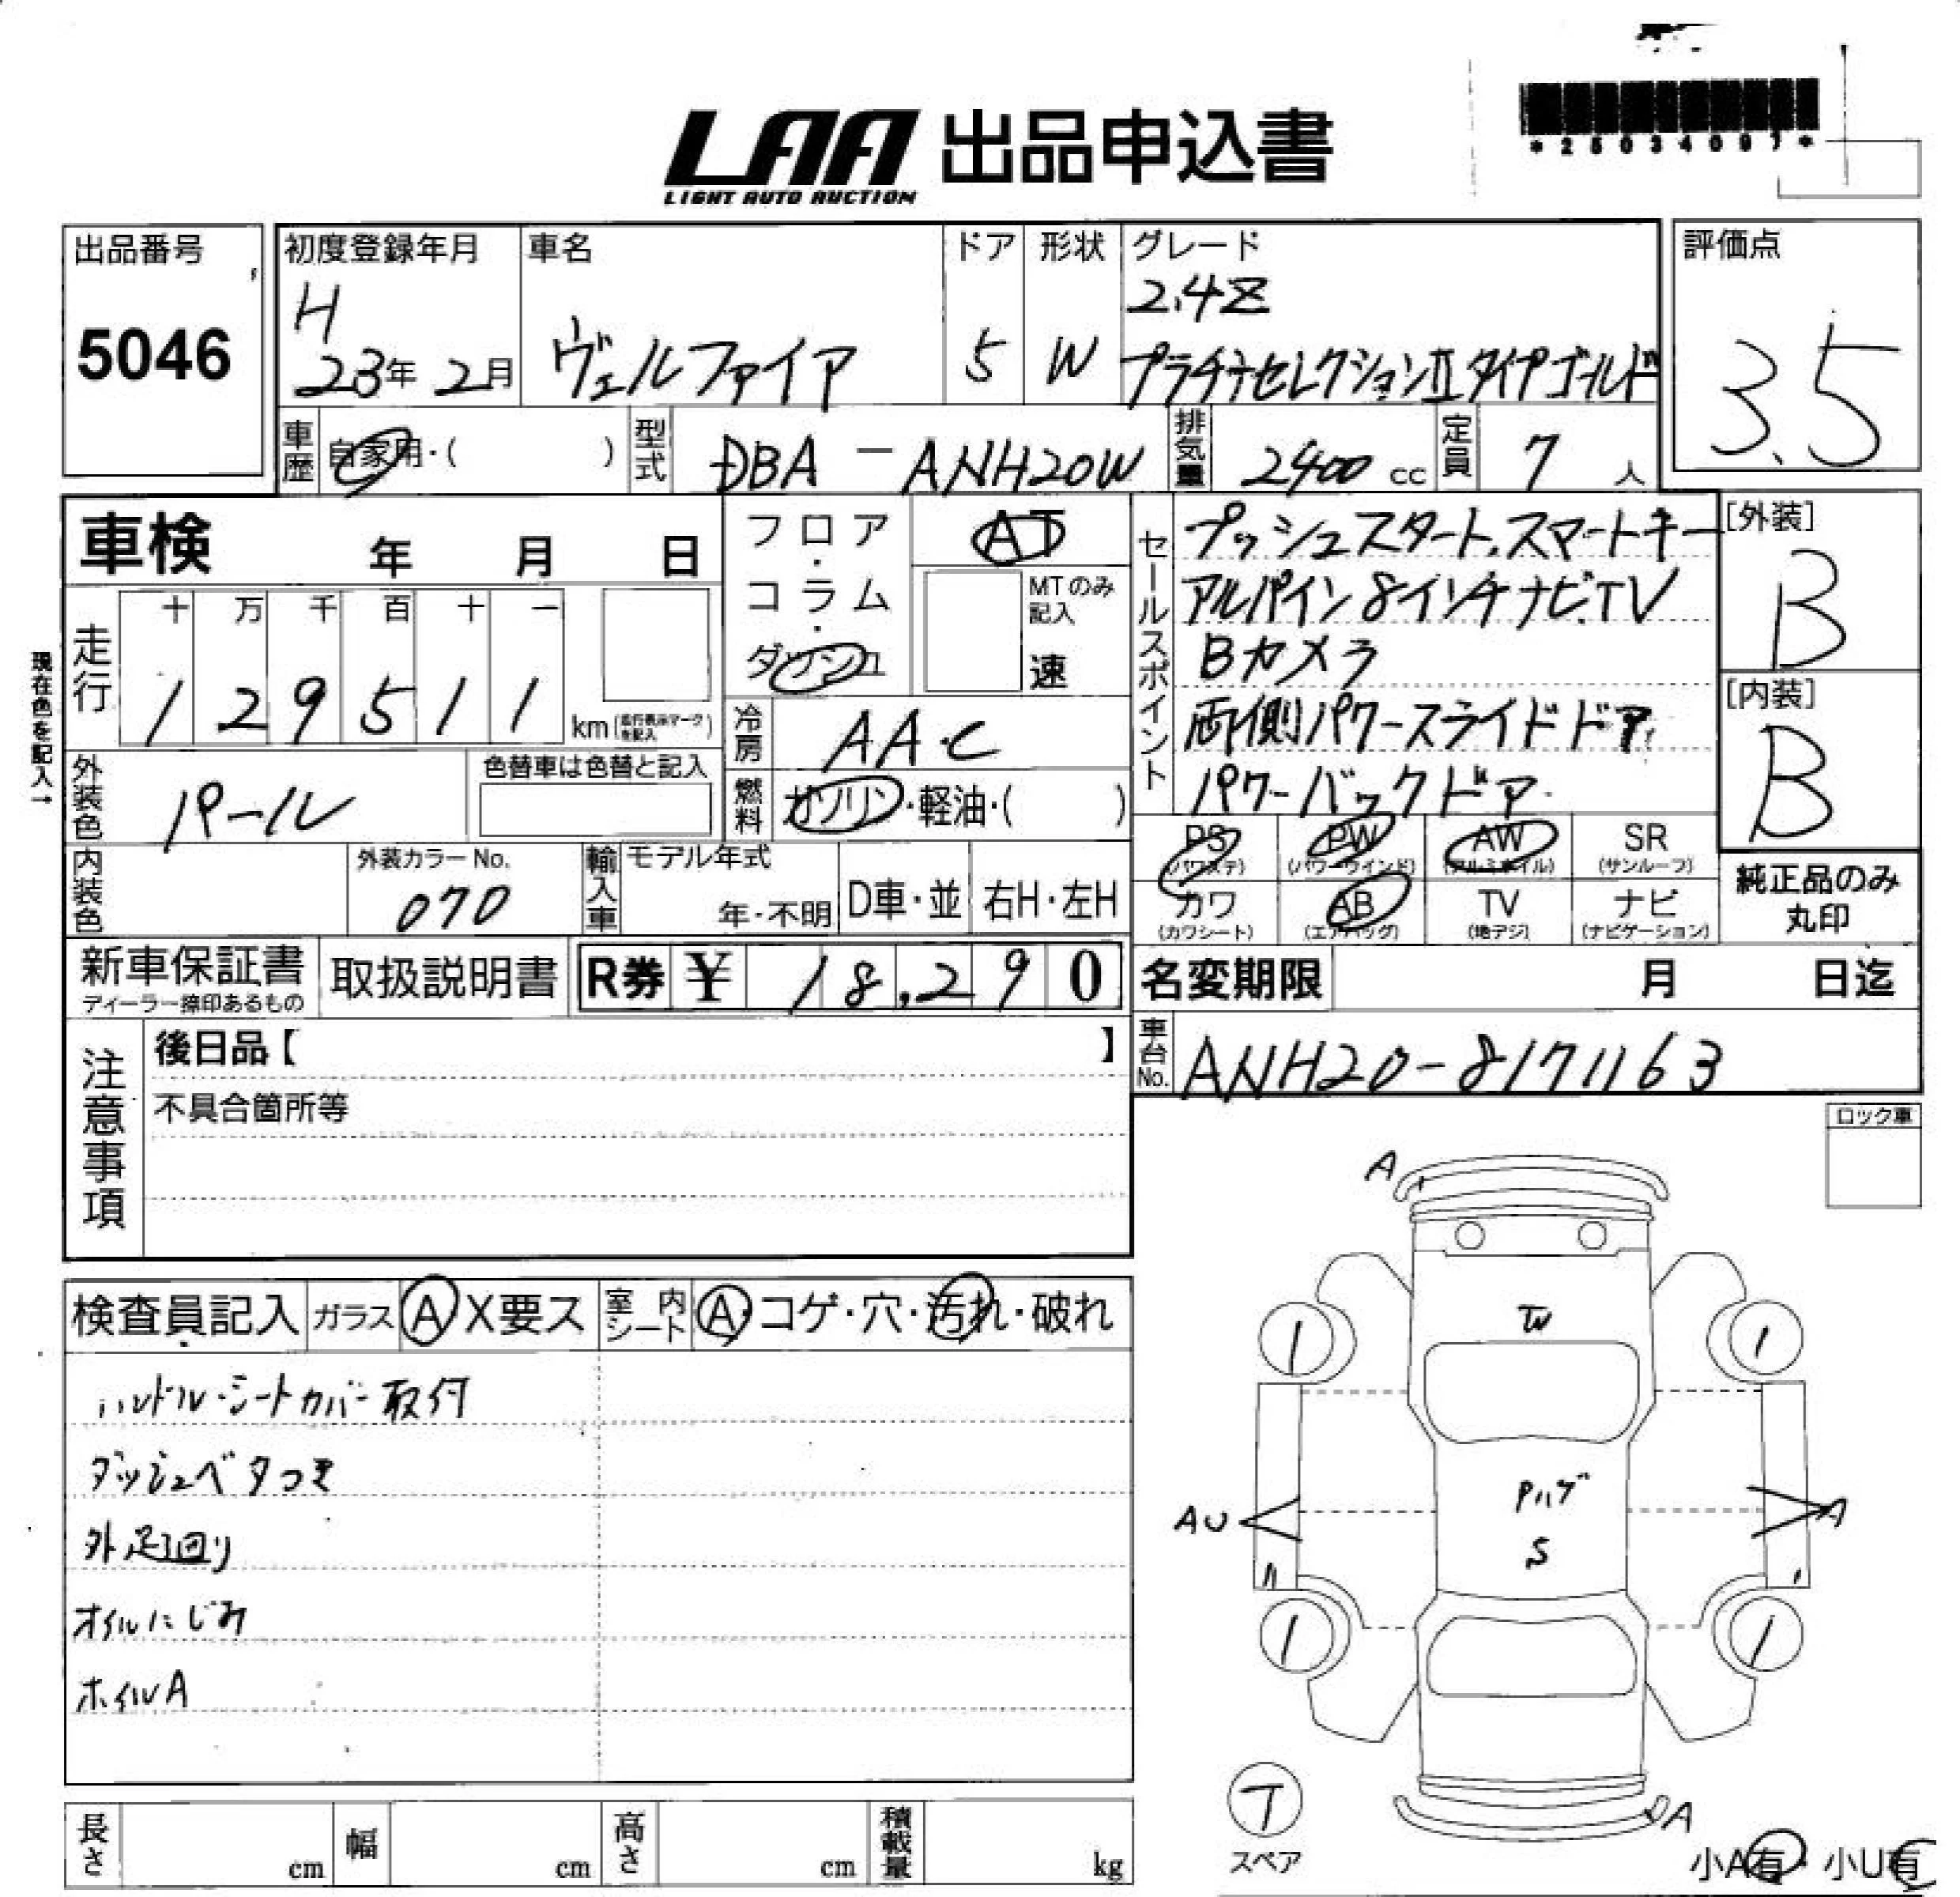 LAA 出品申込書
LIGHT AUTO AUCTION
*25034097*
出品番号
5046
初度登録年月
H
23年 2月
車名
ヴェルファイア
ドア
5
形状
W
グレード
2.4Z
プラチナセレクションⅡタイプゴールド
評価点
3.5
車歴
自家用・( )
型式
DBA-ANH20W
排気量
2400 cc
定員
7 人
車検 年 月 日
フロア・コラム・ダッシュ
AT
MTのみ記入
速
セールスポイント
プッシュスタート、スマートキー
アルパイン8インチナビTV
Bカメラ
両側パワースライドドア
パワーバックドア
[外装]
B
[内装]
B
現在色を記入→
走行
十 万 千 百 十 一
1 2 9 5 1 1 km (走行表示マークを記入)
冷房
AAC
外装色
パール
色替車は色替と記入
燃料
ガソリン・軽油・( )
PS (パワステ)
PW (パワーウインド)
AW (アルミホイル)
SR (サンルーフ)
カワ (カワシート)
AB (エアバッグ)
TV (地デジ)
ナビ (ナビゲーション)
純正品のみ
丸印
内装色
外装カラーNo.
070
輸入車
モデル年式
年・不明
D車・並
右H・左H
新車保証書
ディーラー捺印あるもの
取扱説明書
R券 ¥ 18,290
名変期限 月 日迄
車台No.
ANH20-8171163
注意事項
後日品【 】
不具合箇所等
ロック車
検査員記入
ガラス A X要ス
室内シート A・コゲ・穴・汚れ・破れ
ハンドル・シートカバー取付
ダッシュベタつき
外足回り
オイルにじみ
ホイルA
A
TW
Pハゲ
S
AU
A
A
T
スペア
小A有・小U有
長さ cm
幅 cm
高さ cm
積載量 kg